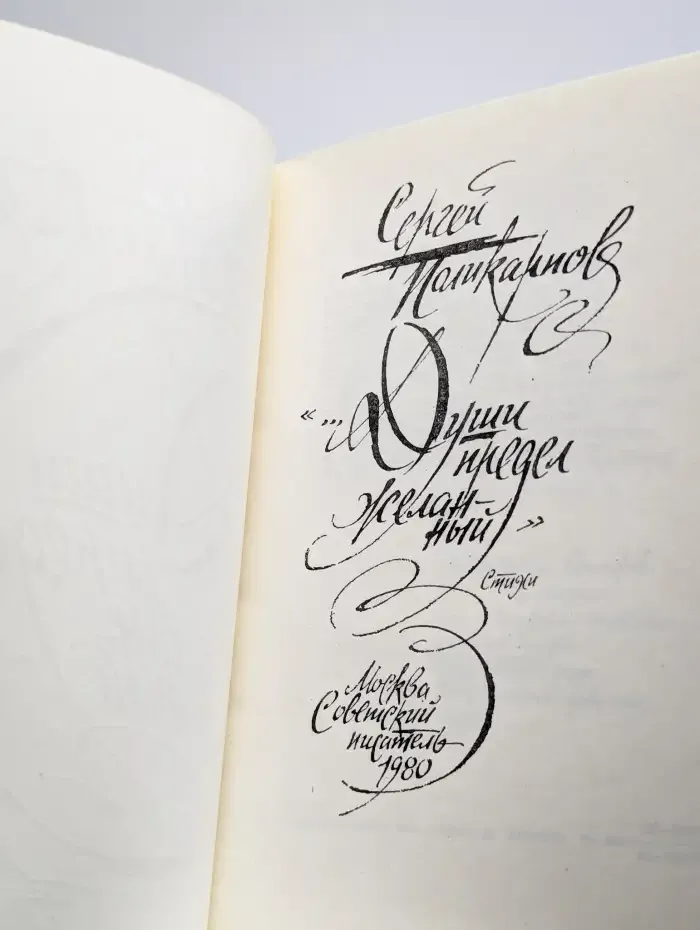 Сергей
Поликарпов
«...Души
предел
желан-
ный»
Стихи
Москва
Советский
писатель
1980